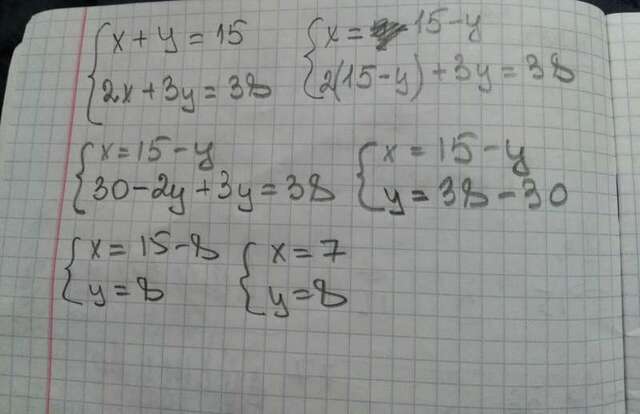 x + y = 15
2x + 3y = 38
x = 15 - y
2(15 - y) + 3y = 38
x = 15 - y
30 - 2y + 3y = 38
x = 15 - y
y = 38 - 30
x = 15 - 8
y = 8
x = 7
y = 8